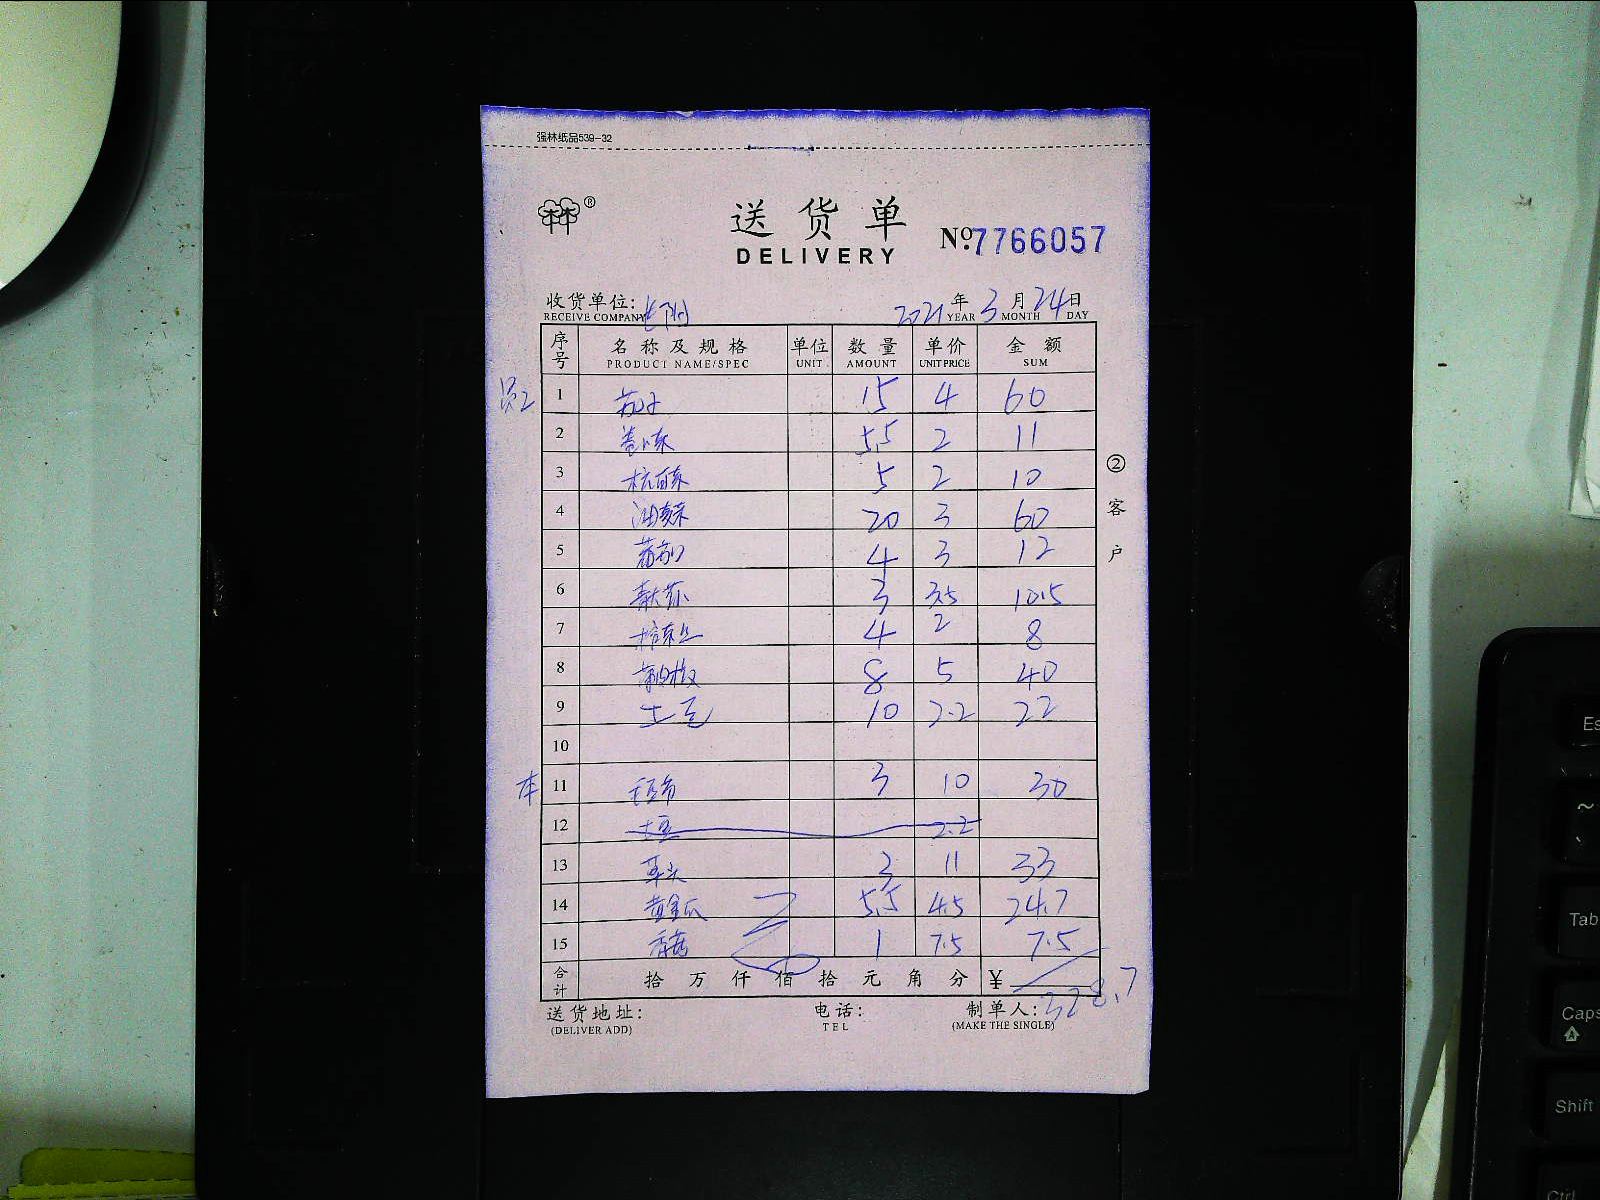 强林纸品539-32
林®
送货单
DELIVERY
№ 7766057
收货单位:
RECEIVE COMPANY
2021 年 3 月 24 日
YEAR MONTH DAY
序号 名称及规格 单位 数量 单价 金额
PRODUCT NAME/SPEC UNIT AMOUNT UNIT PRICE SUM
1 15 4 60
2 5.5 2 11
3 5 2 10
4 20 3 60
5 4 3 12
6 3 3.5 10.5
7 4 2 8
8 8 5 40
9 土豆 10 2.2 22
10
本 11 3 10 30
12 土豆 2.2
13 3 11 33
14 黄金瓜 5.5 4.5 24.7
15 香菇 1 7.5 7.5
合计 拾 万 仟 佰 拾 元 角 分 ¥
328.7
送货地址: 电话: 制单人:
(DELIVER ADD) TEL (MAKE THE SINGLE)
② 客户